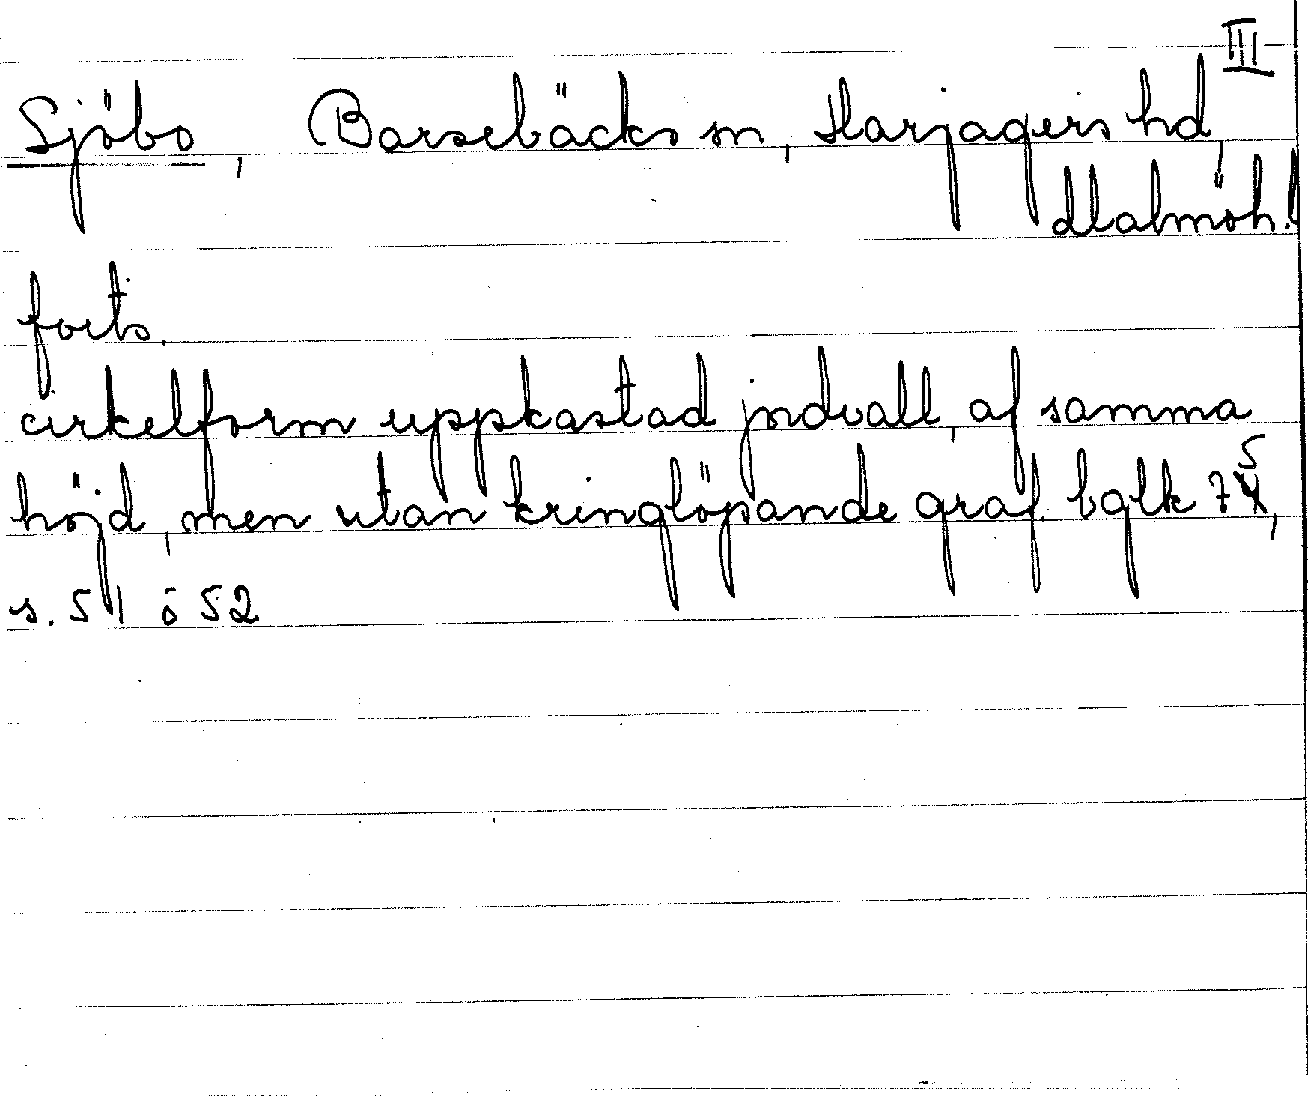 III
Sjöbo, Barsebäcks sn, Harjagers hd,
Malmöh. l
forts.
cirkelform uppkastad jordvall, af samma
höjd, men utan kringlöpande graf. bglk 75,
s. 51 o 52